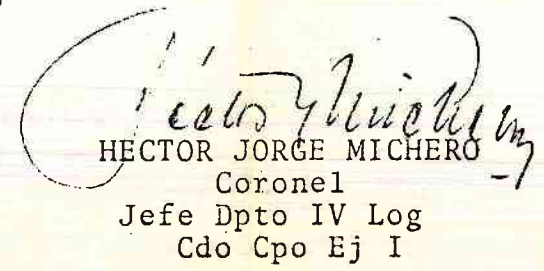 HECTOR JORGE MICHERO
Coronel
Jefe Dpto IV Log
Cdo Cpo Ej I